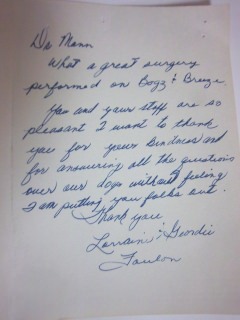 Dr. Mann
What a great surgery
performed on Bogg & Breeze
You and your staff are so
pleasant I want to thank
you for your kindness and
for answering all the questions
over our dogs without feeling
I am putting you folks out.
Thank you
Lorrain & Geordie